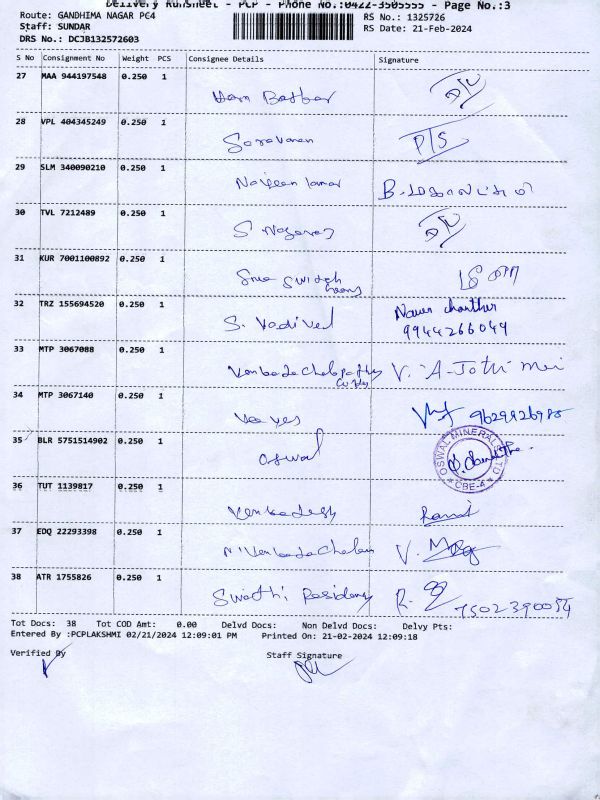 Delivery Runsheet - PCP - Phone No.:0422-3505555 - Page No.:3
Route: GANDHIMA NAGAR PC4 RS No.: 1325726
Staff: SUNDAR RS Date: 21-Feb-2024
DRS No.: DCJB132572603
S No Consignment No Weight PCS Consignee Details Signature
27 MAA 944197548 0.250 1
28 VPL 404345249 0.250 1 Saravanan P/S
29 SLM 340090210 0.250 1 Naveen kumar B.
30 TVL 7212489 0.250 1 S Nagaraj
31 KUR 7001100892 0.250 1
32 TRZ 155694520 0.250 1 S. Vadivel
9944266049
33 MTP 3067088 0.250 1 Venkatachalapathy V. A-Jothi Mani
34 MTP 3067140 0.250 1 9629926985
35 BLR 5751514902 0.250 1 Oswal OSWAL MINERALS LTD CBE-4
36 TUT 1139817 0.250 1 Venkadesh
37 EDQ 22293398 0.250 1 N. Venkadachalam V.
38 ATR 1755826 0.250 1 Swathi Residency R. 7502390054
Tot Docs: 38 Tot COD Amt: 0.00 Delvd Docs: Non Delvd Docs: Delvy Pts:
Entered By :PCPLAKSHMI 02/21/2024 12:09:01 PM Printed On: 21-02-2024 12:09:18
Verified By Staff Signature